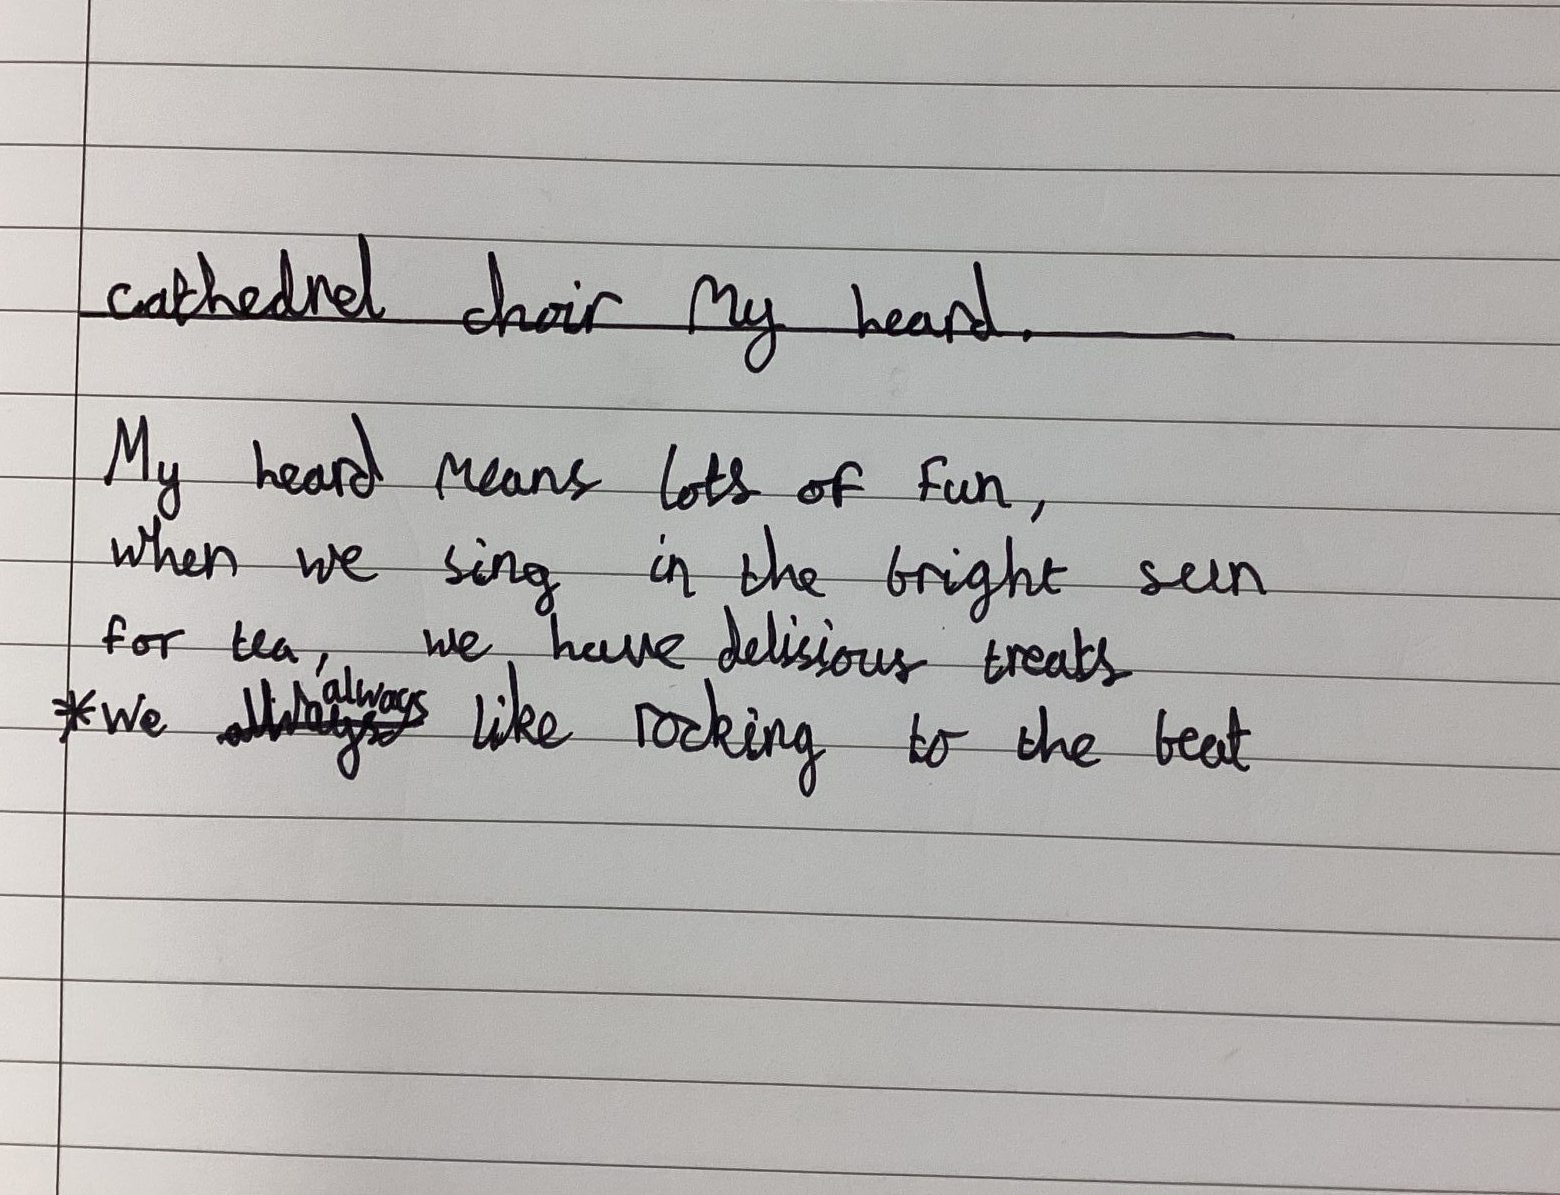 cathedrel choir My heard.
My heard means lots of fun,
when we sing in the bright sun
for tea, we have delisious treats
*We always like rocking to the beat